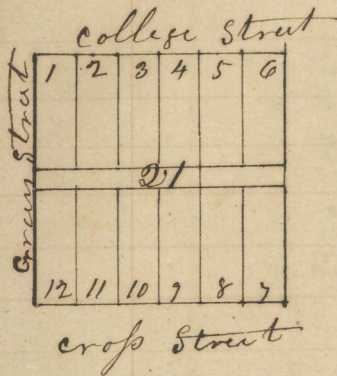 College Street
Green Street
1 2 3 4 5 6
21
12 11 10 9 8 7
Cross Street